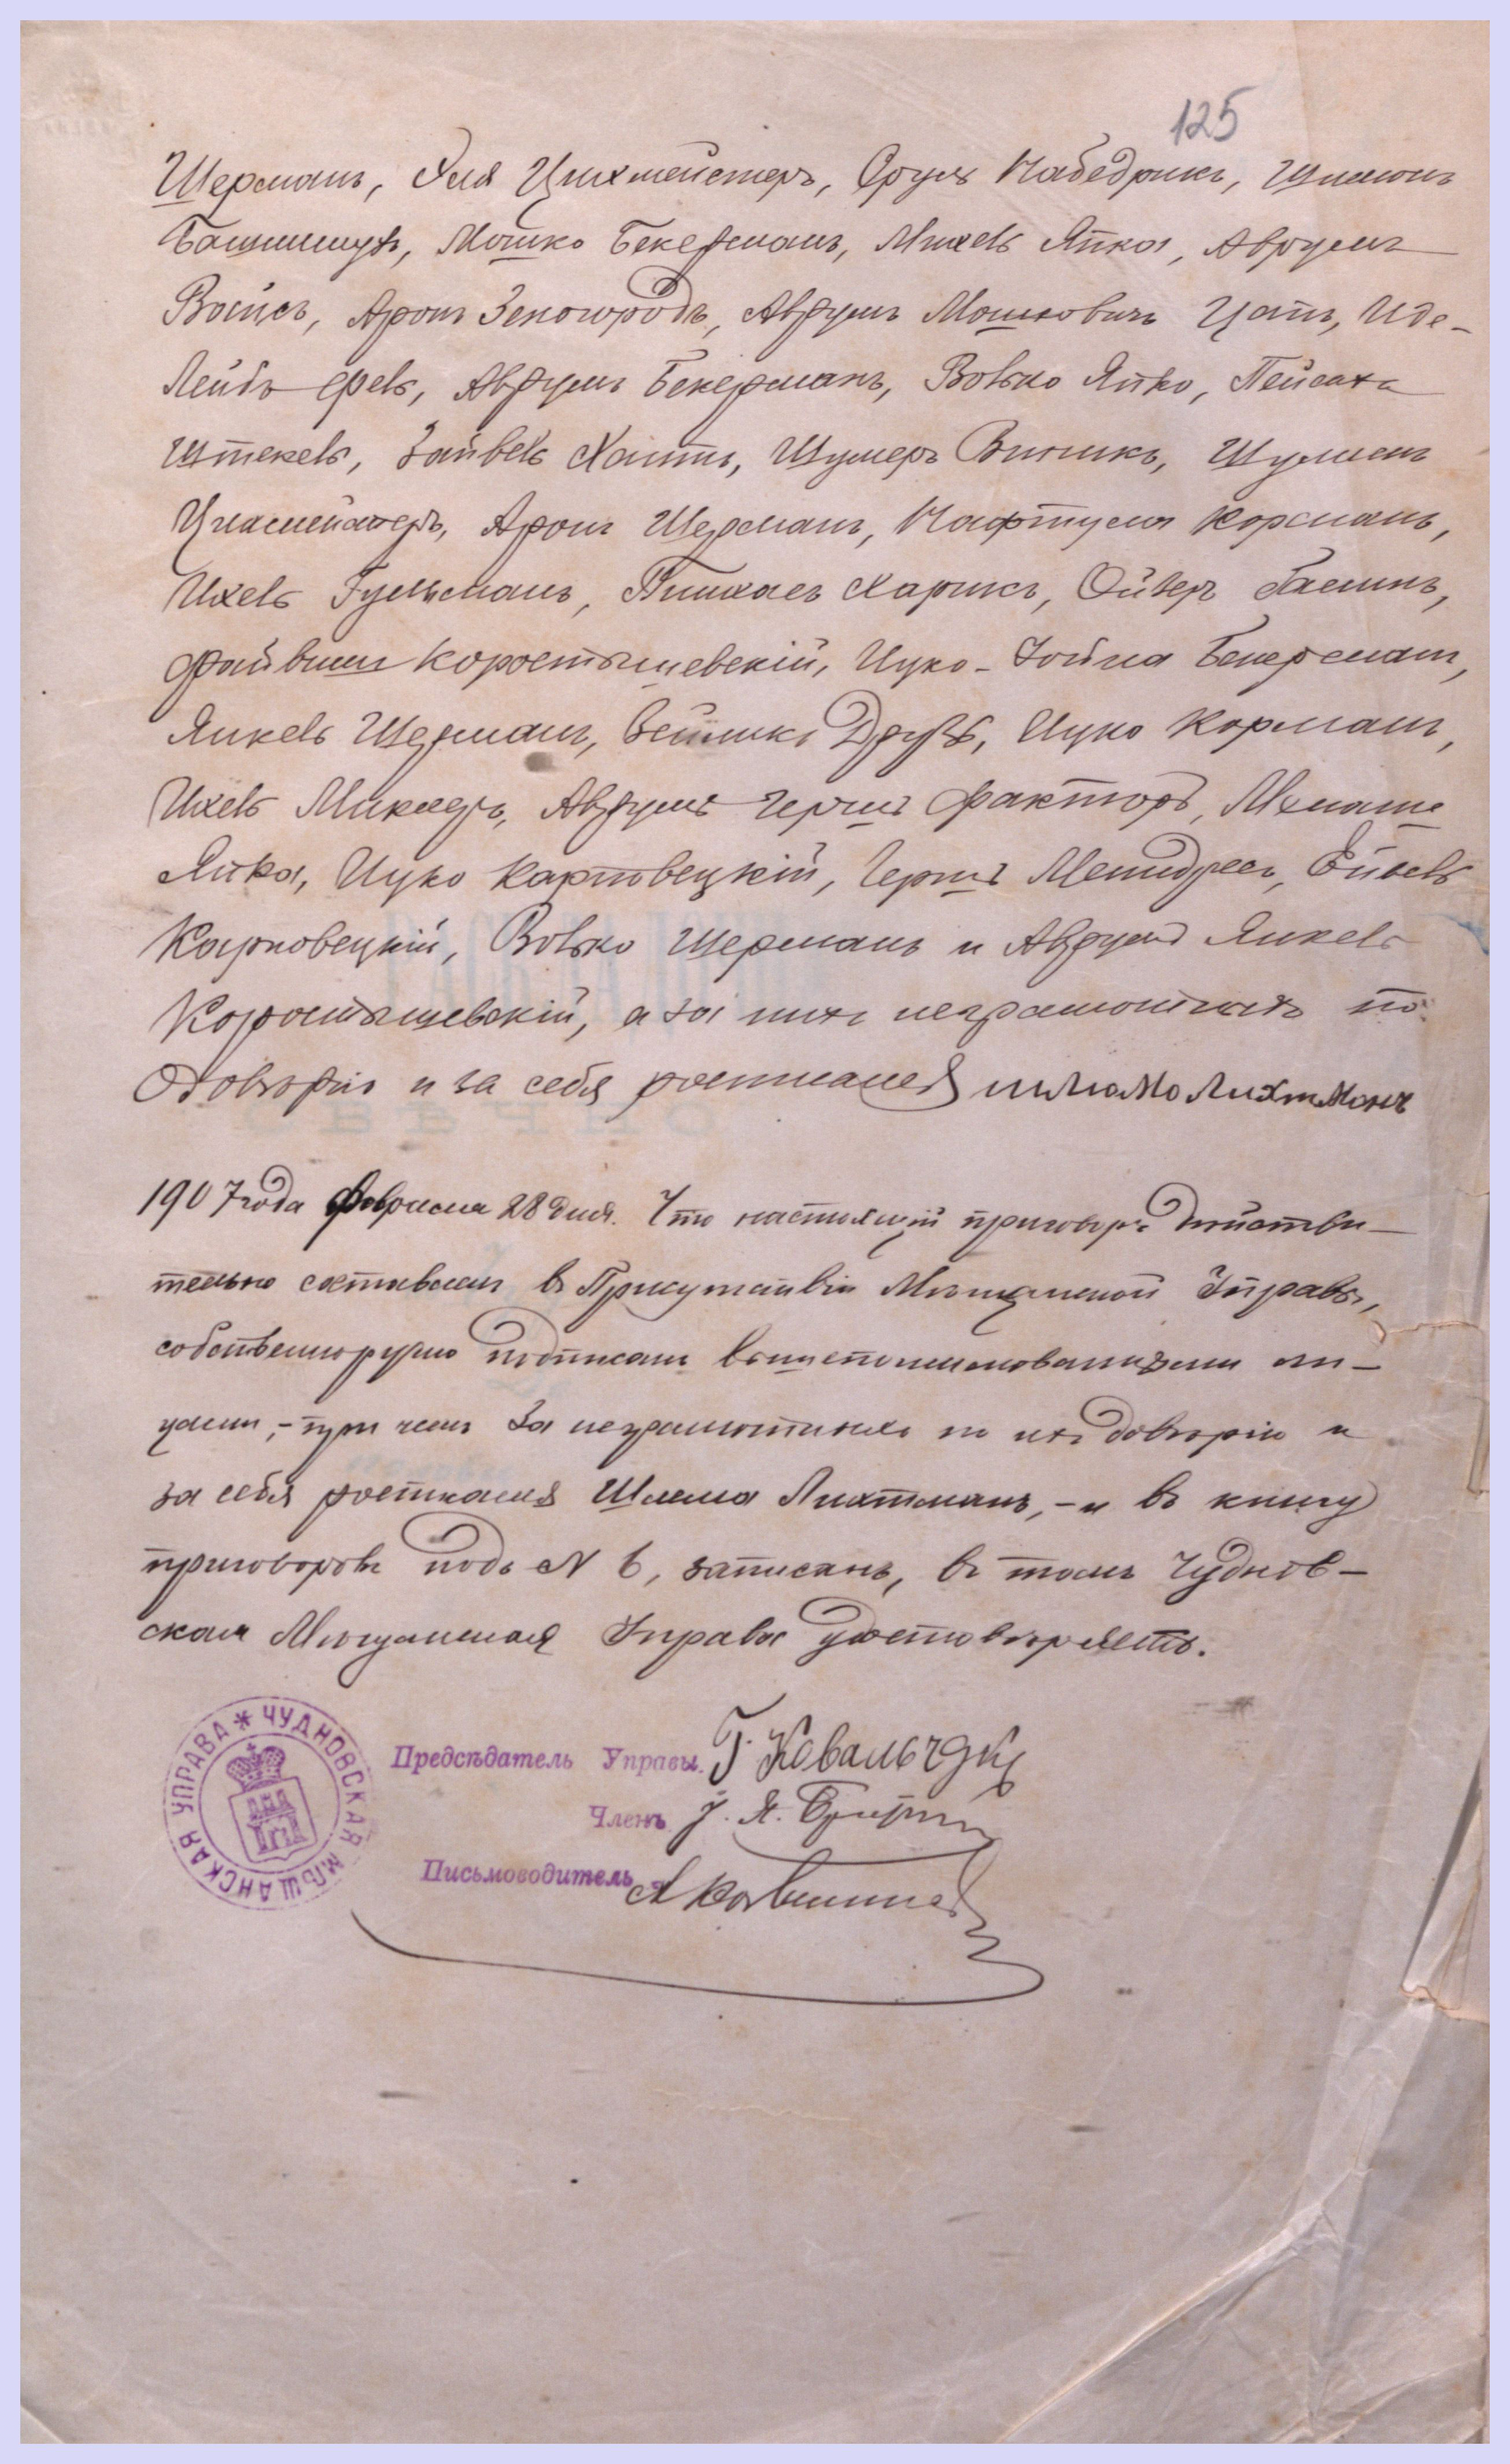 125
Шерманъ, Эля Цихмейстеръ, Сруль Набедрикъ, Шимонъ
Башмашук, Мошко Бекерманъ, Михель Япка, Аврумъ
Войсъ, Аронъ Зеногородъ, Аврумъ Мошковичъ Цапъ, Иде-
Лейбъ Фель, Аврумъ Бекерманъ, Волько Япко, Пейсахъ
Штекель, Зайвель Хаитъ, Шумеръ Виникъ, Шулимъ
Цихмейстеръ, Аронъ Шерманъ, Нафтула Корманъ,
Ихель Гульманъ, Пинхасъ Харикъ, Ойзеръ Галинъ,
Файвиш Коростышевскій, Ицко-Іойна Бекерманъ,
Янкель Шерманъ, Зейликъ Друзь, Ицко Корманъ,
Ихель Маклеръ, Аврумъ Гершъ Факторъ, Менаше
Япка, Ицко Карповецкій, Гершъ Меладресъ, Ейзель
Карповецкій, Волько Шерманъ и Аврумъ Янкель
Коростышевскій, а за нихъ неграмотныхъ по
довѣрію и за себя росписался шлиомо лихтмонъ
1907 года Февраля 28 дня. Что настоящій приговоръ дѣйстви-
тельно составленъ въ Присутствіи Мѣщанской Управы,
собственноручно подписанъ вышепоименованными ли-
цами, - при чемъ за неграмотныхъ по ихъ довѣрію и
за себя росписался Шлема Лихтманъ, - и въ книгу
приговоровъ подъ N 6, записанъ, въ томъ Чуднов-
ская Мѣщанская Управа удостовѣряетъ.
ЧУДНОВСКАЯ МѢЩАНСКАЯ УПРАВА
Предсѣдатель Управы Г. Ковальчукъ
Членъ
Письмоводитель